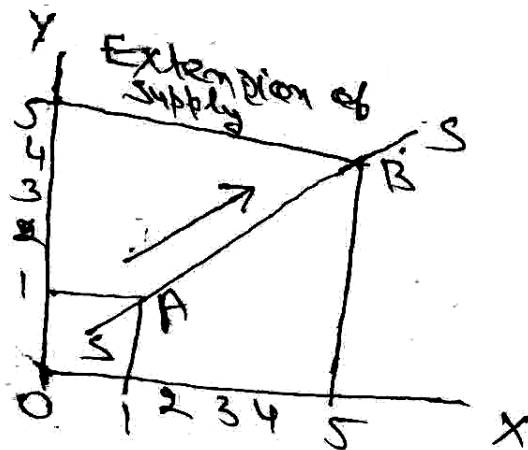 Y
Extension of
supply
5
4
3
2
1
S
B
A
S
0
1 2 3 4 5
X